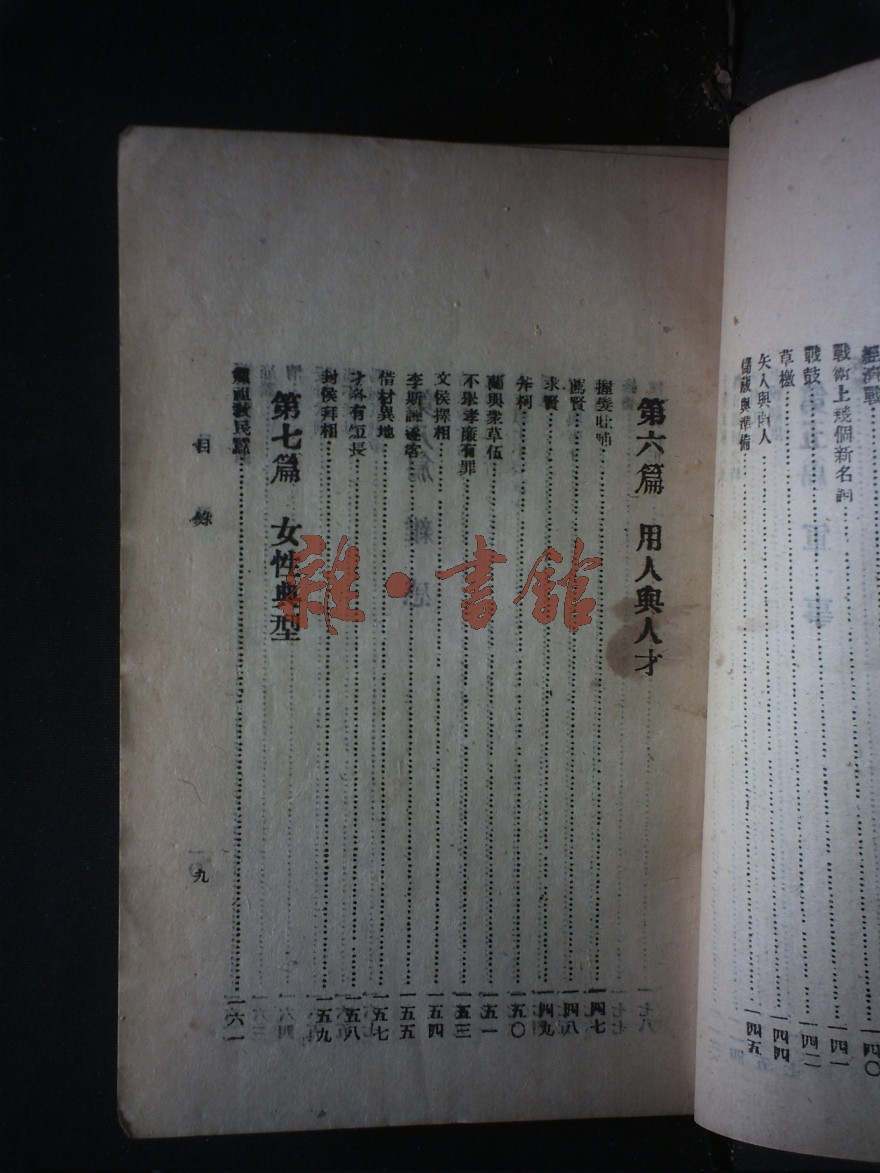 經濟戰 一四〇
戰術上幾個新名詞 一四一
戰鼓 一四二
草檄 一四四
矢人與函人 一四五
儲藏與準備
第六篇 用人與人才
握髮吐哺 一四七
薦賢 一四八
求賢 一四九
斧柯 一五〇
蘭與衆草伍 一五一
不舉孝廉有罪 一五三
文侯擇相 一五四
李斯諫逐客 一五五
借材異地 一五七
才各有短長 一五八
封侯拜相 一五九
第七篇 女性典型
嫘祖教民蠶 一六一
目錄
九
雜·書館